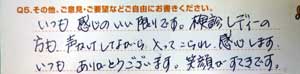 Q5.その他、ご意見・ご要望などご自由にお書きください。
いつも 感じのいい 対応です。検診レディーの
方も 声かけしてから 入ってこられ、感心します。
いつも ありがとうございます。笑顔がすてきです。